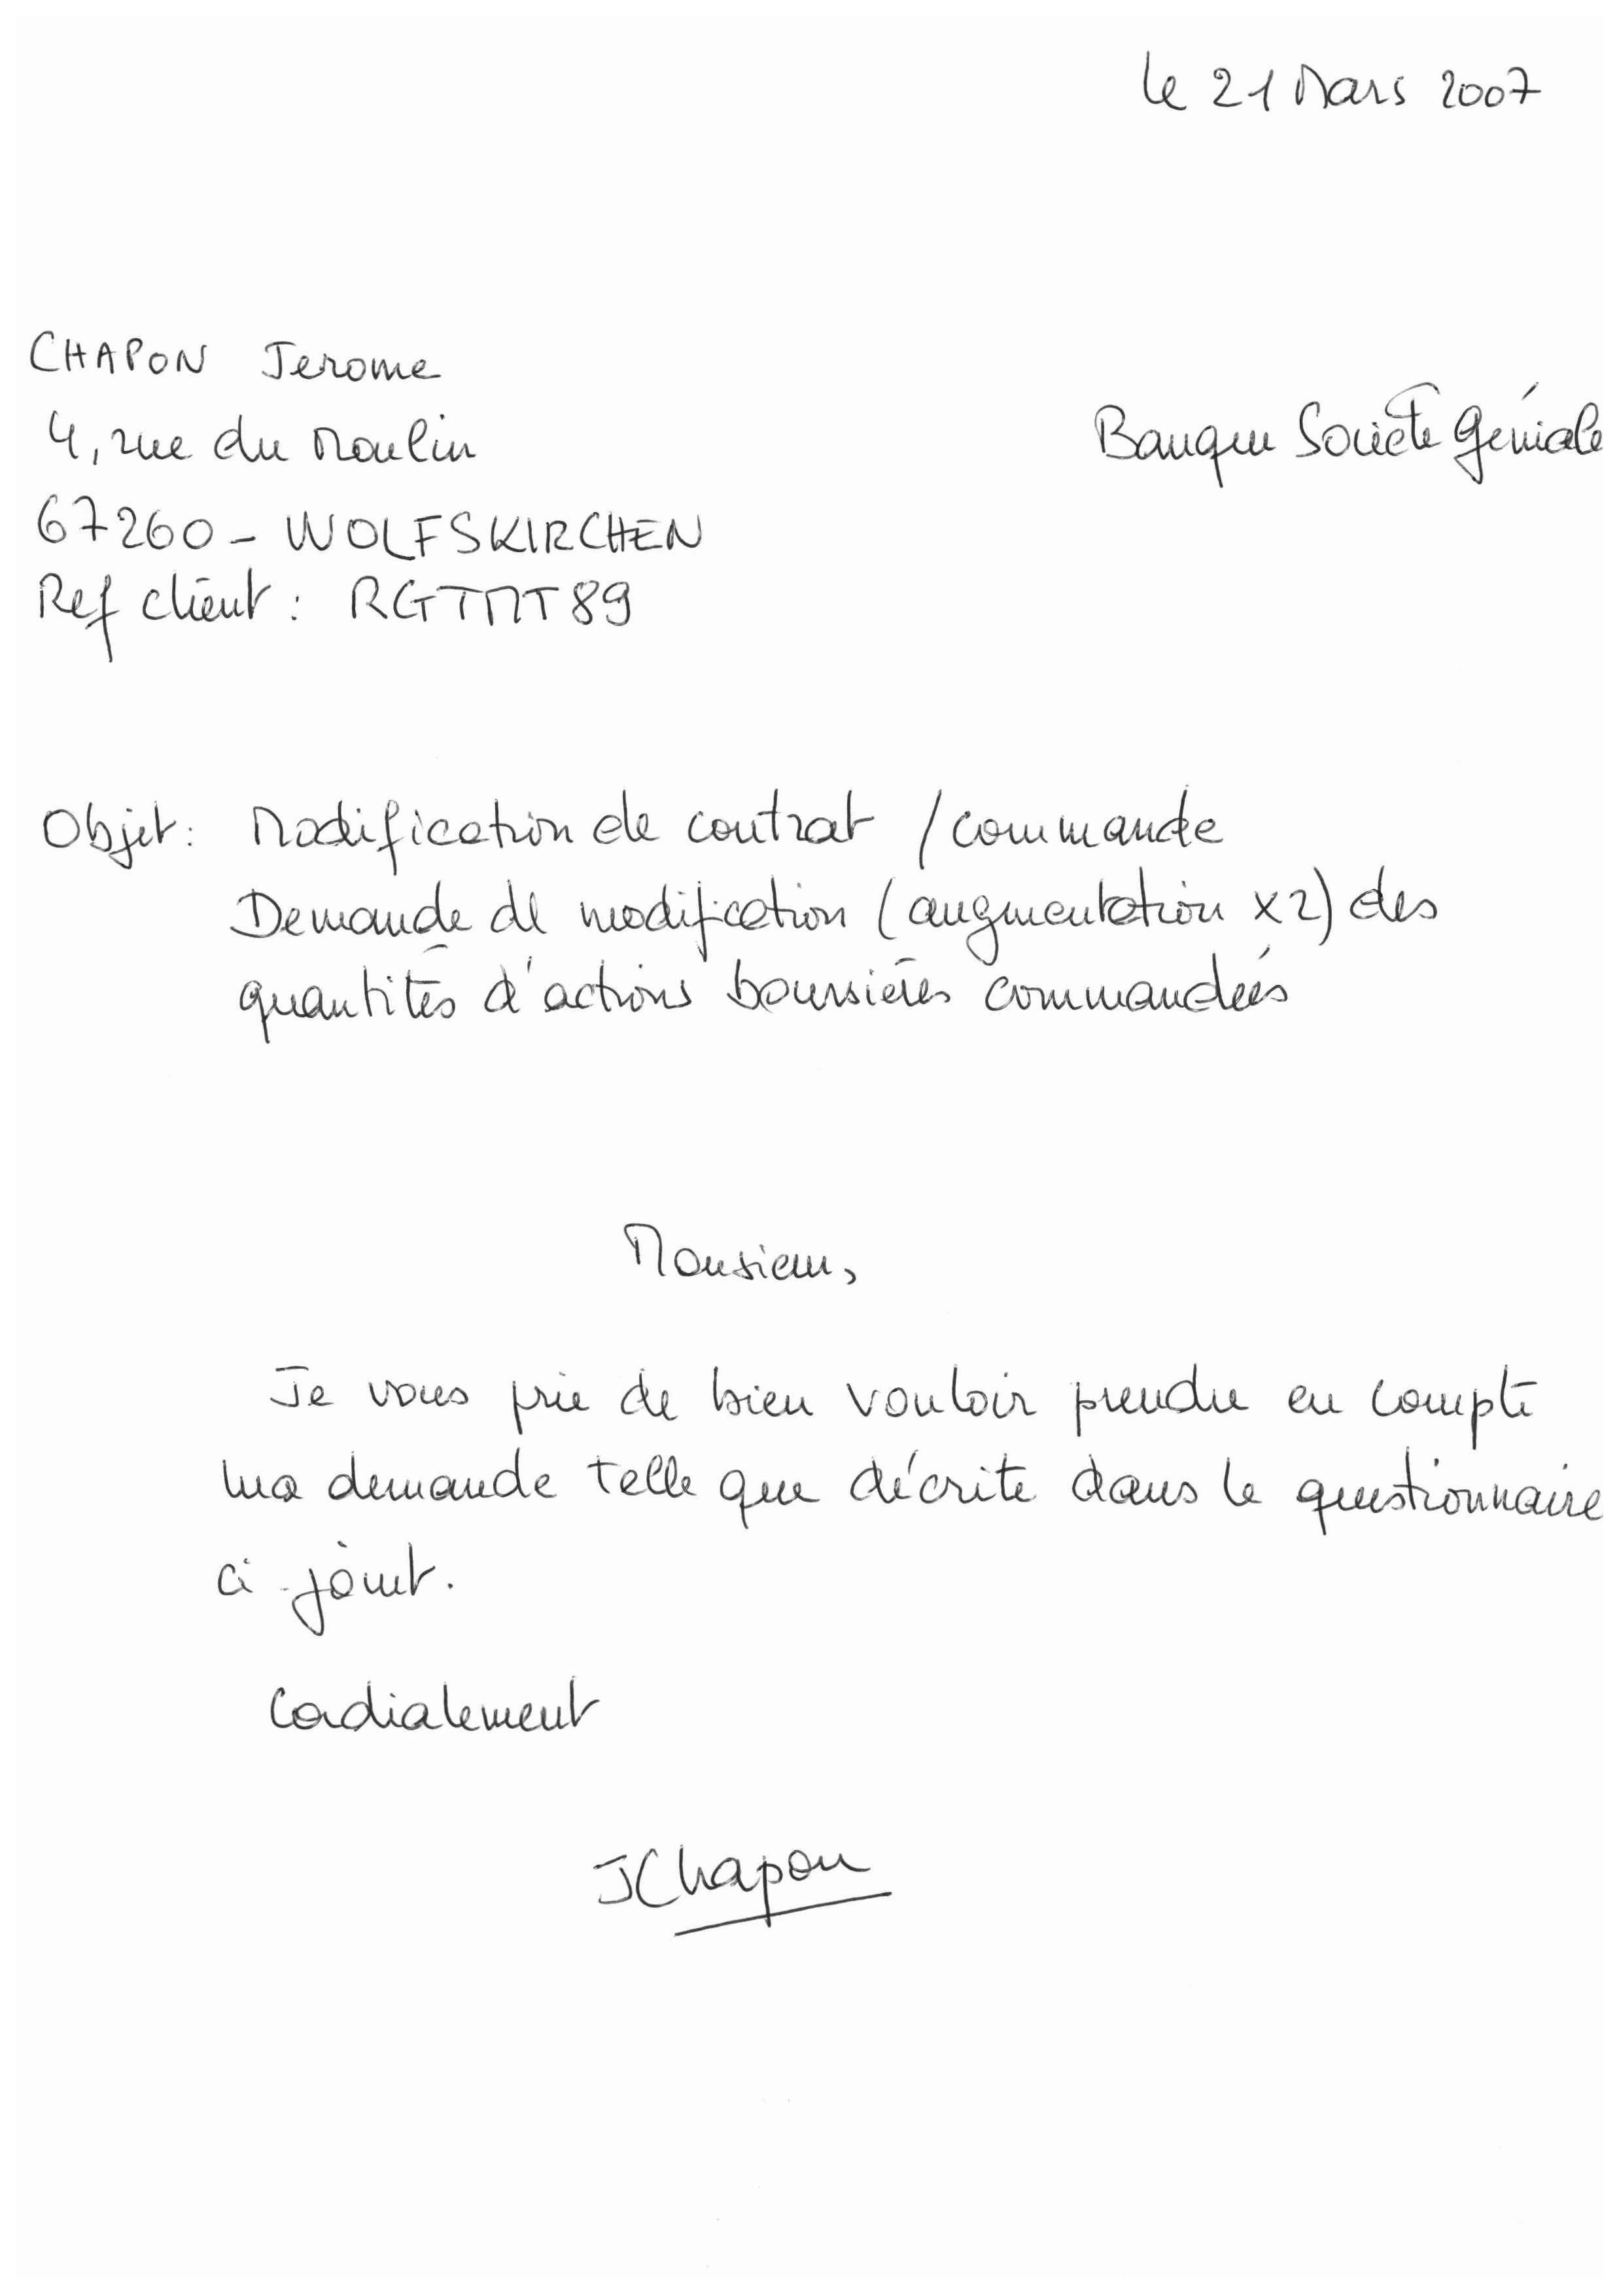 le 21 Mars 2007
CHAPON Jerome
4, rue du Moulin
Banque Société Géniale
67260 - WOLFSKIRCHEN
Ref client : RGTMT89
Objet : Modification de contrat / commande
Demande de modification (augmentation x2) des
quantités d'actions boursières commandées
Monsieur,
Je vous prie de bien vouloir prendre en compte
ma demande telle que décrite dans le questionnaire
ci-joint.
Cordialement
JChapon